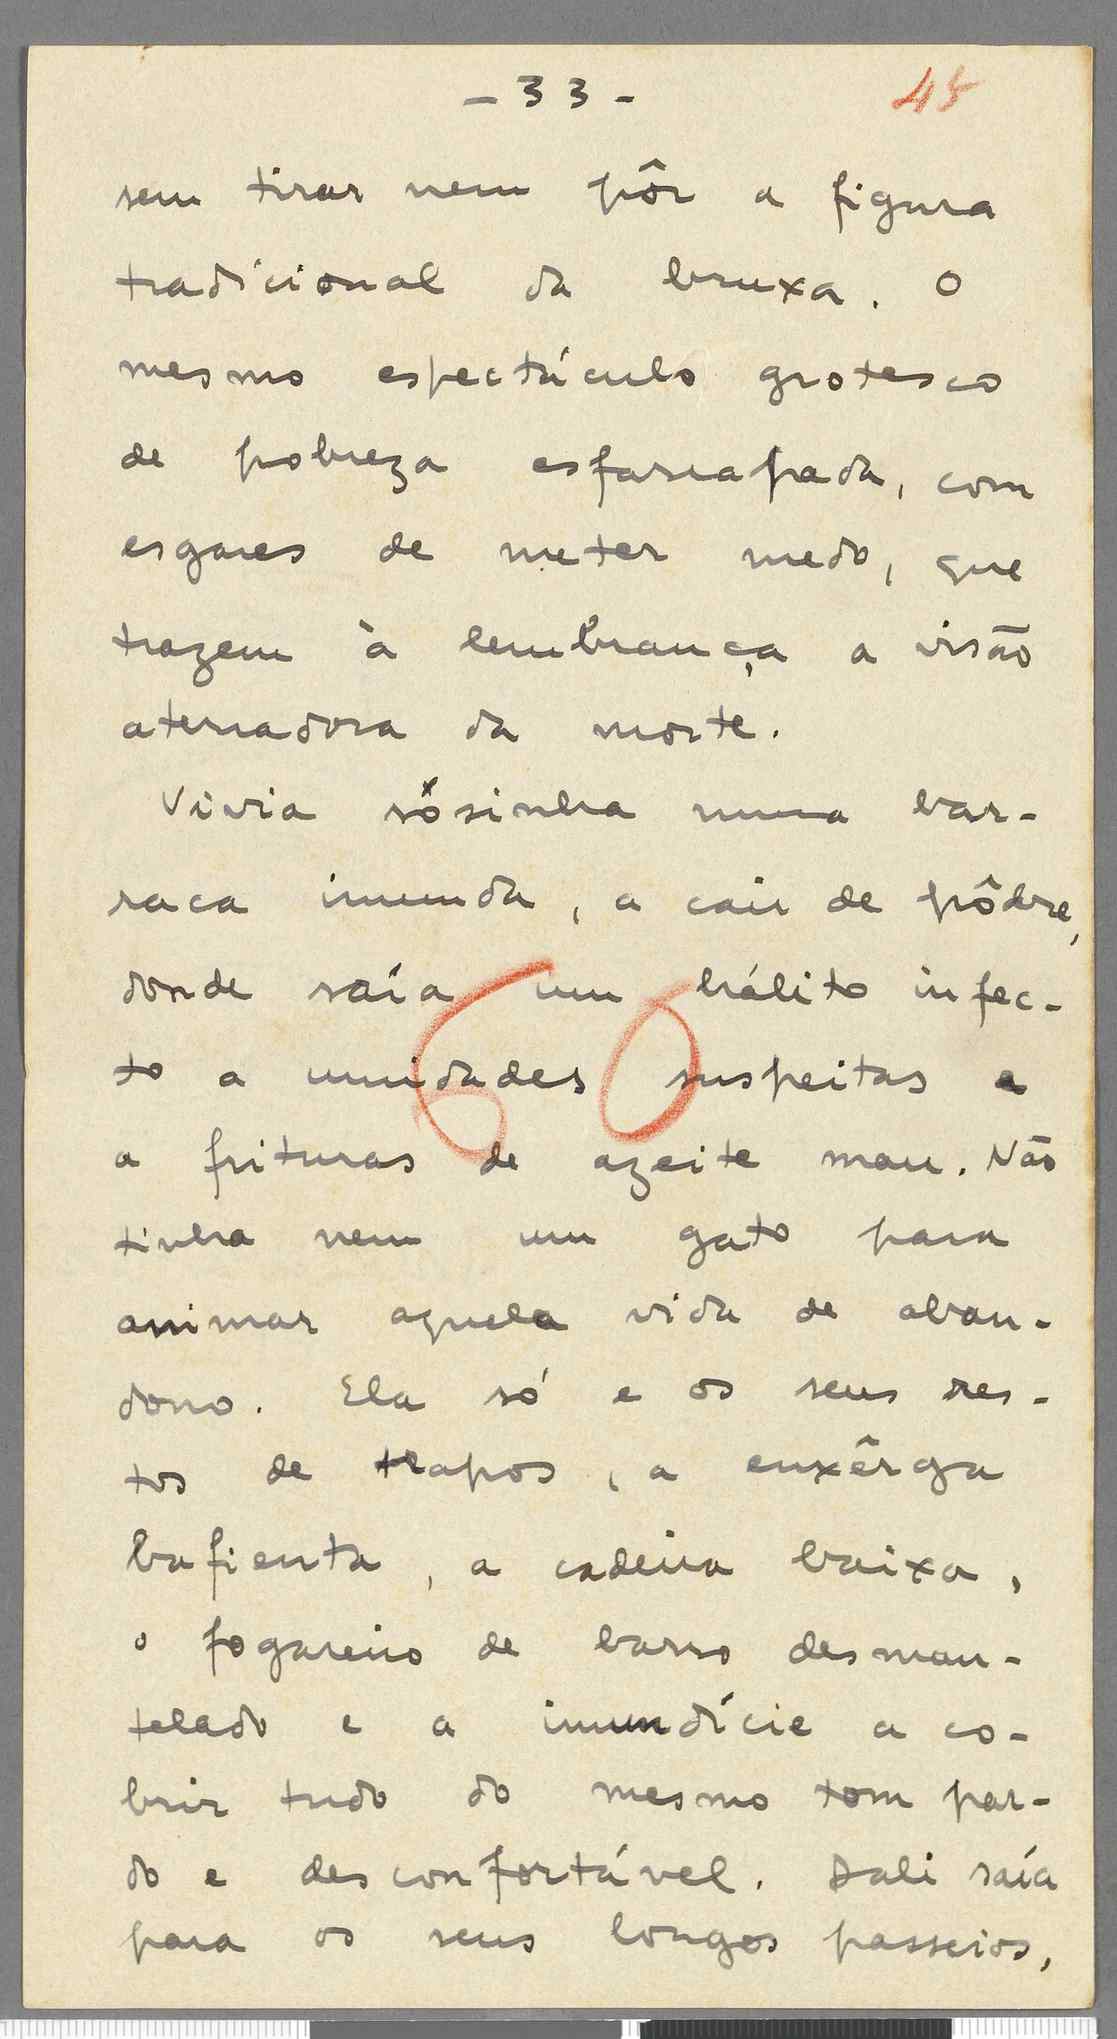 - 33 -
45
sem tirar nem pôr a figura
tradicional da bruxa. O
mesmo espectáculo grotesco
de pobreza esfarrapada, com
esgares de meter medo, que
trazem à lembrança a visão
aterradora da morte.
Vivia sòsinha numa bar-
raca imunda, a cair de pôdre,
donde saía um hálito infec-
to a umidades suspeitas e
a frituras de azeite mau. Não
tinha nem um gato para
animar aquela vida de aban-
dono. Ela só e os seus res-
tos de trapos, a enxêrga
bafienta, a cadeira baixa,
o fogareiro de barro desman-
telado e a imundície a co-
brir tudo do mesmo tom par-
do e desconfortável. Dali saía
para os seus longos passeios,